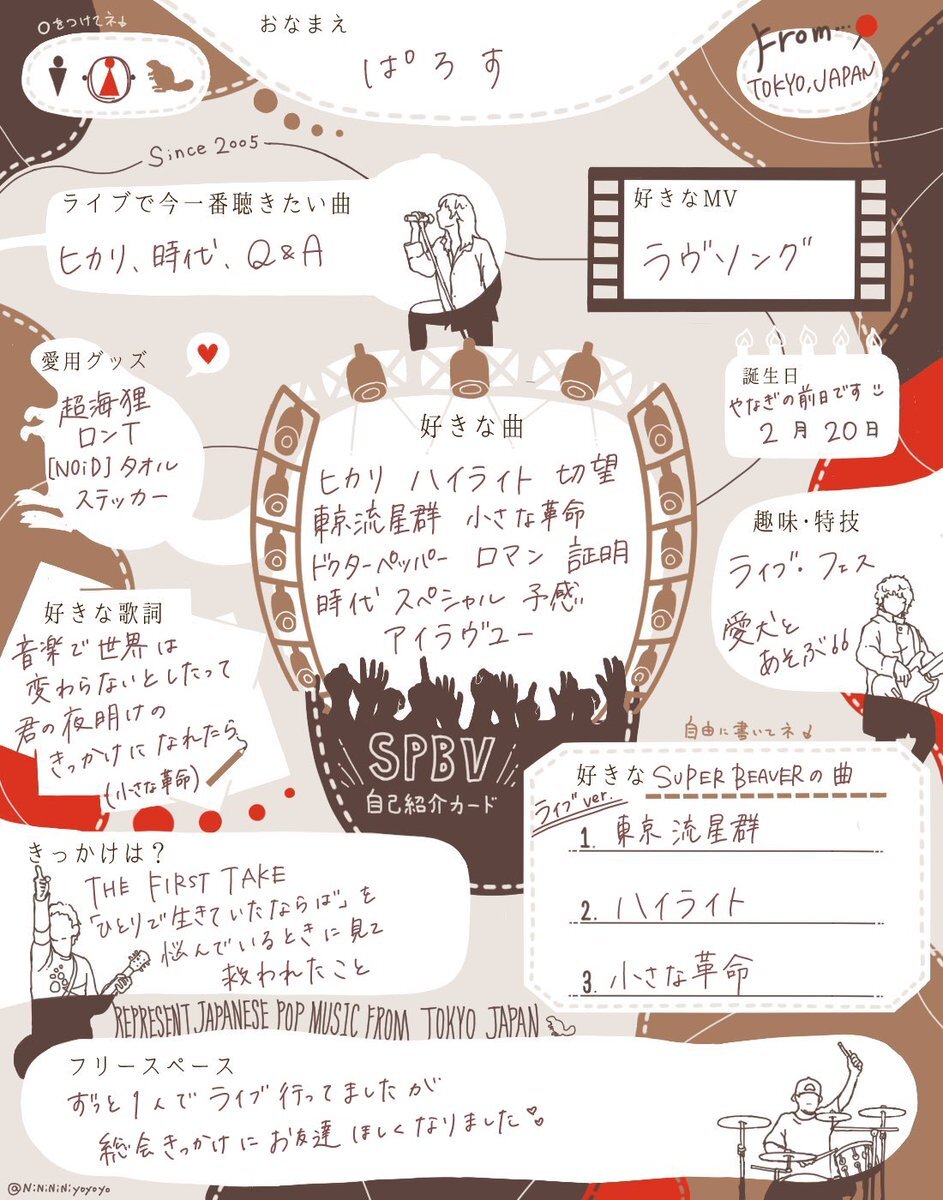 ○をつけてネ
おなまえ
ぱろす
From…
TOKYO, JAPAN
Since 2005
ライブで今一番聴きたい曲
ヒカリ、時代、Q&A
好きなMV
ラヴソング
愛用グッズ
超海狸
ロンT
[NOiD]タオル
ステッカー
誕生日
やなぎの前日です
2月20日
好きな曲
ヒカリ ハイライト 切望
東京流星群 小さな革命
ドクターペッパー ロマン 証明
時代 スペシャル 予感
アイラヴユー
趣味・特技
ライブ・フェス
愛犬と
あそぶ
好きな歌詞
音楽で世界は
変わらないとしたって
君の夜明けの
きっかけになれたら
(小さな革命)
SPBV
自己紹介カード
自由に書いてネ
好きなSUPER BEAVERの曲
ライブver.
1. 東京流星群
2. ハイライト
3. 小さな革命
きっかけは？
THE FIRST TAKE
「ひとりで生きていたならば」を
悩んでいるときに見て
救われたこと
REPRESENT JAPANESE POP MUSIC FROM TOKYO JAPAN
フリースペース
ずっと1人でライブ行ってましたが
総会きっかけにお友達ほしくなりました
@NiNiNiNiyoyoyo